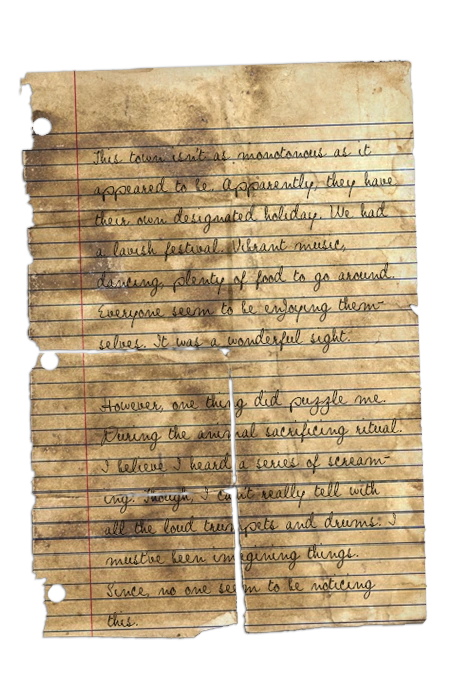 This town isn't as monotonous as it
appeared to be. Apparently, they have
their own designated holiday. We had
a lavish festival. Vibrant music,
dancing, plenty of food to go around.
Everyone seem to be enjoying them-
selves. It was a wonderful sight.
However, one thing did puzzle me.
During the animal sacrificing ritual.
I believe I heard a series of scream-
ing. Though, I can't really tell with
all the loud trumpets and drums. I
mustve been imagining things.
Since, no one seem to be noticing
this.